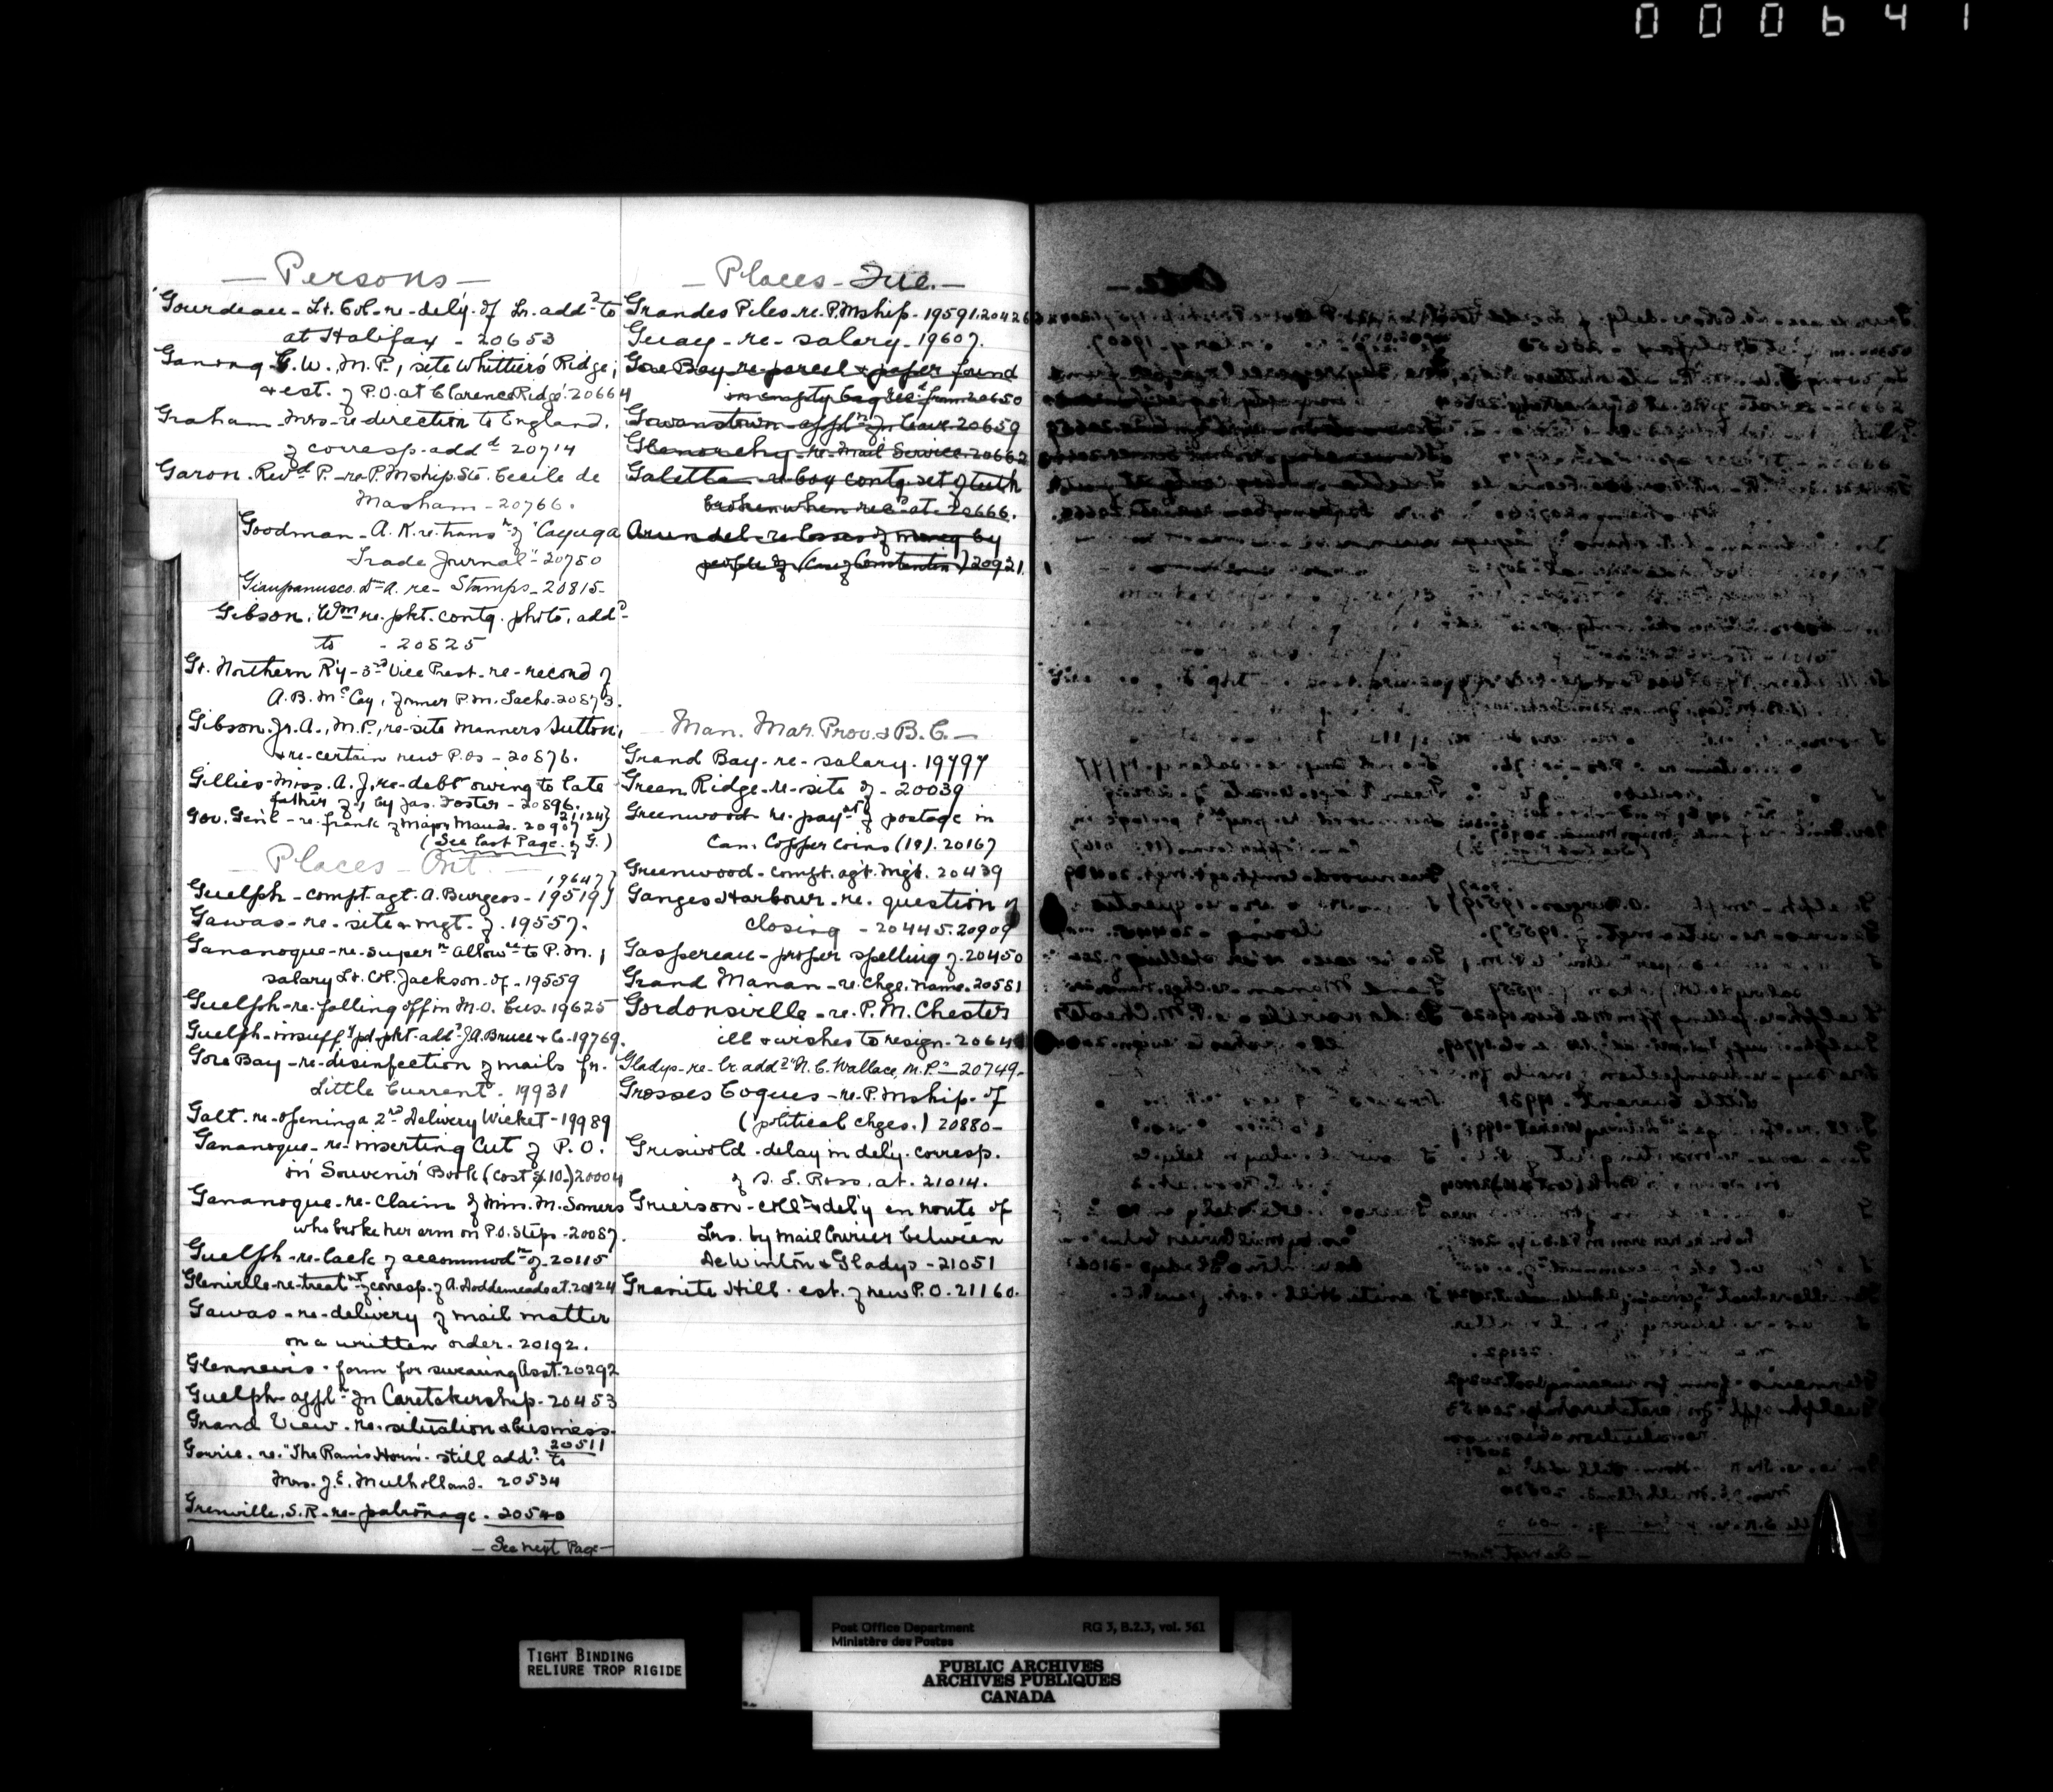 000641
— Persons —
Gourdeau - Lt. Col. - re - dely. of Lr. addd to
at Halifax - 20653
Ganong G. W. M. P., site Whittier's Ridge;
& est. of P.O. at Clarence Ridge. 20664
Graham - Mrs - re direction to England.
of corresp. addd 20714
Garon. Revd P. - re P. Mship Ste. Cecile de
Masham - 20766.
Goodman - A. K. re trans n of "Cayuga
Trade Journal" 20750
A. re - Stamps - 20815 -
Gibson, Wm re. pkt. contg. photo. addd
to - 20825
Gt. Northern Ry - 3rd Vice Prest - re - record of
A. B. McCay, former P. M. Sache. 20873.
Gibson Jr. A., M. P., re - site Manners Sutton,
& re - certain new P.Os - 20876.
Gillies - Miss. A. J. re - debt owing to late
father of, by Jas. Foster - 20896.
Gov. Genl - re. frank of Major Maude. 20907 21124}
(See last Page of G.)
— Places - Ont. —
Guelph - compt. agt. A. Burgess - 19519} 19647}
Gawas - re - site & mgt. of. 19557.
Gananoque - re - supern allowce to P. M.;
salary Lt. Col. Jackson - of - 19559
Guelph - re - falling off in M. O. bus. 19625
Guelph - insuffy pd. pkt. addd J. A. Bruce & Co - 19769.
Gore Bay - re - disinfection of mails fr.
Little Current - 19931
Galt. re - opening a 2nd Delivery Wicket - 19989
Gananoque - re - inserting Cut of P. O.
in Souvenir Book (cost $10.) 20004
Gananoque - re - claim of Mrs. M. Somers
who broke her arm on P. O. Steps - 20087.
Guelph - re - lack of accommodn of - 20115
Glenville - re - treatmt of corresp. of A. Doddemeade at. 20124
Gawas - re - delivery of mail matter
on a written order - 20192.
Glennevis - form for swearing Asst. 20292
Guelph - appln for Caretakership - 20453
Grand View - re - situation & business -
20511
Gorrie. re. "The Ram's Horn" - still addd to
Mrs. J. E. Mulholland. 20534
Grenville, S. R - re - patronage - 20540
— See next Page —
— Places - Que. —
Grandes Piles - re. P. Mship - 19591. 20426
Guay - re - salary - 19607.
Gore Bay - re parcel & paper found
in empty bag recd from 20650
Gowanstown - appln for leave 20659
Glenorchy - re - Mail Service - 20662
Galetta - re box contg set of teeth
broken when recd at - 20666.
Arundel - re losses of money by
people of (Case of Constantin) 20921
Man. Mar. Prov. & B. C. —
Grand Bay - re - salary - 19797
Green Ridge - re - site of - 20039
Greenwood - re - payt of postage in
Can. Copper coins (1¢). 20167
Greenwood - compt. agt. mgt. 20439
Ganges Harbour - re. question of
closing - 20445. 20909
Gaspereau - proper spelling of. 20450
Grand Manan - re. chge. name. 20581
Gordonsville - re. P. M. Chester
ill & wishes to resign - 2064
Gladys - re - lr. addd "N. C. Wallace, M. P." - 20749 -
Grosses Coques - re - P. Mship. of
(political chges.) 20880 -
Griswold - delay in dely. corresp.
of D. L. Ross, at. 21014.
Grierson - colln & dely en route of
Lrs. by Mail Courier between
DeWinton & Gladys - 21051
Granite Hill - est. of new P. O. 21160.
TIGHT BINDING
RELIURE TROP RIGIDE
Post Office Department RG 3, B.2.3, vol. 361
Ministère des Postes
PUBLIC ARCHIVES
ARCHIVES PUBLIQUES
CANADA